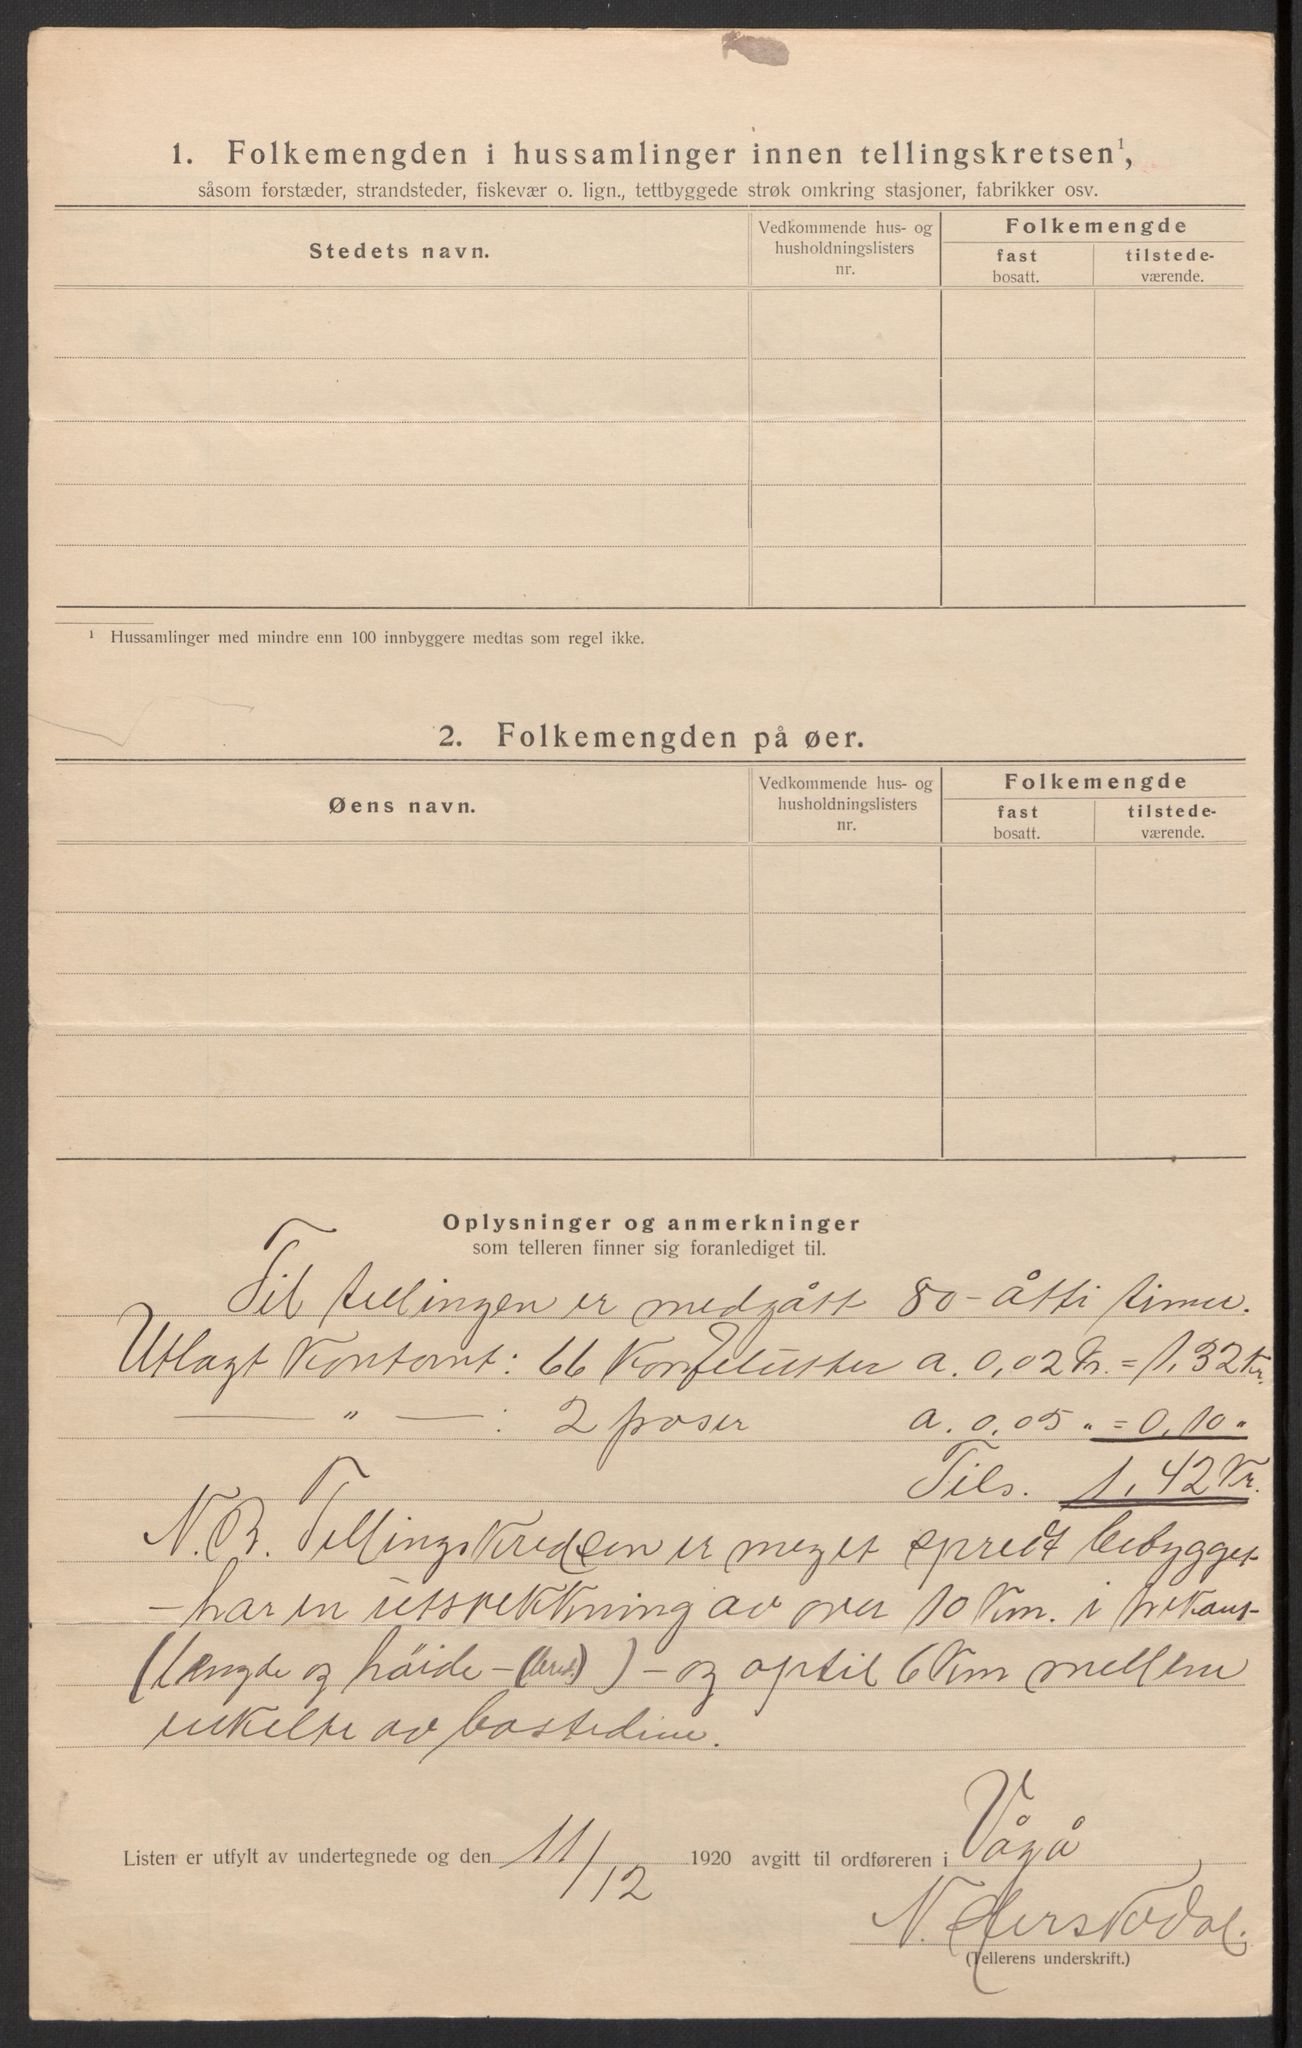 1. Folkemengden i hussamlinger innen tellingskretsen¹,
såsom forstæder, strandsteder, fiskevær o. lign., tettbyggede strøk omkring stasjoner, fabrikker osv.
Stedets navn.
Vedkommende hus- og
husholdningslisters
nr.
Folkemengde
fast
bosatt.
tilstede-
værende.
¹ Hussamlinger med mindre enn 100 innbyggere medtas som regel ikke.
2. Folkemengden på øer.
Øens navn.
Vedkommende hus- og
husholdningslisters
nr.
Folkemengde
fast
bosatt.
tilstede-
værende.
Oplysninger og anmerkninger
som telleren finner sig foranlediget til.
Til tellingen er medgått 80 - åtti timer.
Utlagt kontant: 66 Konfelutter a. 0,02 Kr. = 1,32 Kr.
— " — : 2 poser a. 0,05 " = 0,10 "
Tils. 1,42 Kr.
N.B. Tellingskredsen er meget spredt bebygget
- har en utstrekkning av over 10 Km. i
(længde og høide - (bred.)) - og optil 6 Km mellem
enkelte av bostedene.
Listen er utfylt av undertegnede og den 11/12 1920 avgitt til ordføreren i Vågå
N.
(Tellerens underskrift.)